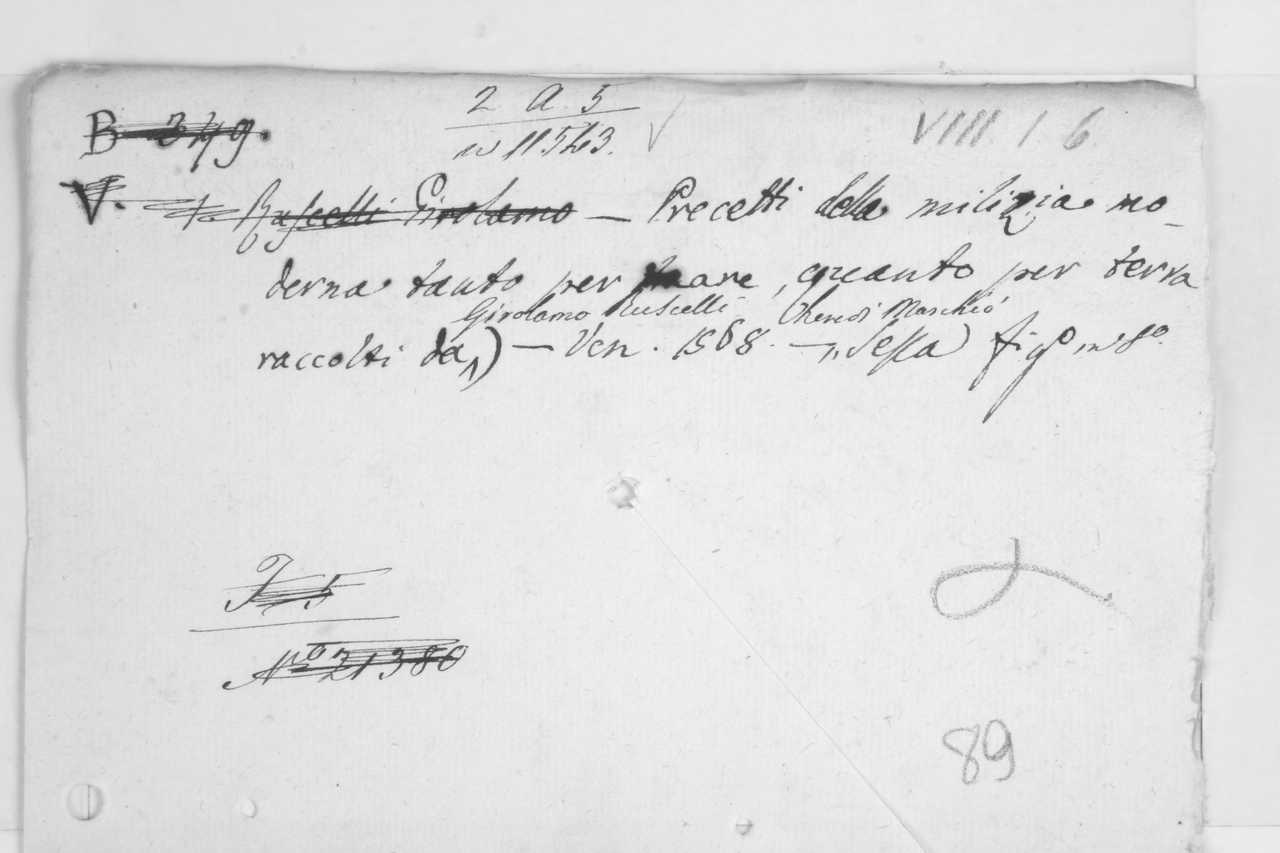 2 A. 5
B 349.
n 11523.
VIII. 1 6.
V. Ruscelli Girolamo — Precetti della milizia mo-
derna tanto per mare, quanto per terra
Girolamo Ruscelli Marchiò
raccolti da) — Ven. 1568. — Sessa fig.o in 8.o
J 5
N.o 21380
89